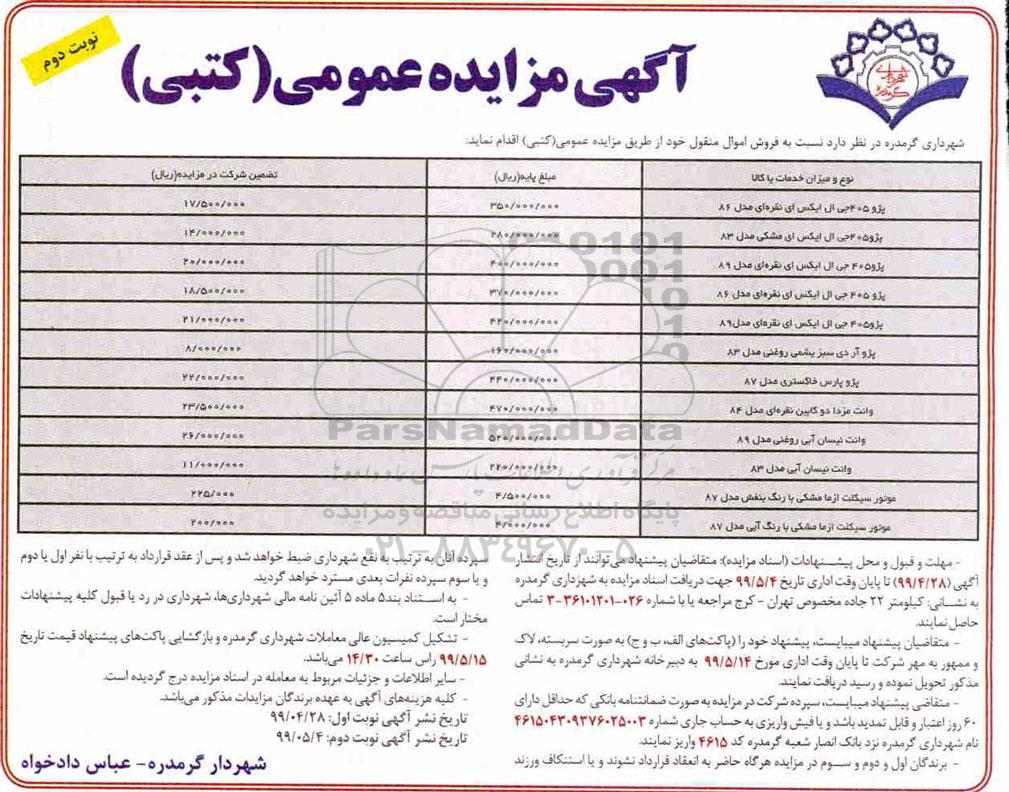 نوبت دوم
آگهی مزایده عمومی(کتبی)
شهرداری گرمدره
شهرداری گرمدره در نظر دارد نسبت به فروش اموال منقول خود از طریق مزایده عمومی(کتبی) اقدام نماید:
نوع و میزان خدمات یا کالا مبلغ پایه(ریال) تضمین شرکت در مزایده(ریال)
پژو ۴۰۵جی ال ایکس ای نقره‌ای مدل ۸۶ ۳۵۰/۰۰۰/۰۰۰ ۱۷/۵۰۰/۰۰۰
پژو۴۰۵جی ال ایکس ای مشکی مدل ۸۳ ۲۸۰/۰۰۰/۰۰۰ ۱۴/۰۰۰/۰۰۰
پژو۴۰۵ جی ال ایکس ای نقره‌ای مدل ۸۹ ۴۰۰/۰۰۰/۰۰۰ ۲۰/۰۰۰/۰۰۰
پژو ۴۰۵ جی ال ایکس ای نقره‌ای مدل ۸۶ ۳۷۰/۰۰۰/۰۰۰ ۱۸/۵۰۰/۰۰۰
پژو۴۰۵ جی ال ایکس ای نقره‌ای مدل۸۹ ۴۲۰/۰۰۰/۰۰۰ ۲۱/۰۰۰/۰۰۰
پژو آر دی سبز یشمی روغنی مدل ۸۳ ۱۶۰/۰۰۰/۰۰۰ ۸/۰۰۰/۰۰۰
پژو پارس خاکستری مدل ۸۷ ۴۴۰/۰۰۰/۰۰۰ ۲۲/۰۰۰/۰۰۰
وانت مزدا دو کابین نقره‌ای مدل ۸۴ ۴۷۰/۰۰۰/۰۰۰ ۲۳/۵۰۰/۰۰۰
وانت نیسان آبی روغنی مدل ۸۹ ۵۲۰/۰۰۰/۰۰۰ ۲۶/۰۰۰/۰۰۰
وانت نیسان آبی مدل ۸۳ ۲۲۰/۰۰۰/۰۰۰ ۱۱/۰۰۰/۰۰۰
موتور سیکلت ازما مشکی با رنگ بنفش مدل ۸۷ ۴/۵۰۰/۰۰۰ ۲۲۵/۰۰۰
موتور سیکلت ازما مشکی با رنگ آبی مدل ۸۷ ۴/۰۰۰/۰۰۰ ۲۰۰/۰۰۰
ParsNamadData
پایگاه اطلاع رسانی مناقصه و مزایده
۰۲۱-۸۸۳۴۹۶۷۰-۵
- مهلت و قبول و محل پیشنهادات (اسناد مزایده): متقاضیان پیشنهاد می‌توانند از تاریخ انتشار
آگهی (۹۹/۴/۲۸) تا پایان وقت اداری تاریخ ۹۹/۵/۴ جهت دریافت اسناد مزایده به شهرداری گرمدره
به نشانی: کیلومتر ۲۲ جاده مخصوص تهران - کرج مراجعه یا با شماره ۰۲۶-۳۶۱۰۱۲۰۱-۳ تماس
حاصل نمایند.
- متقاضیان پیشنهاد میبایست، پیشنهاد خود را (پاکت‌های الف، ب و ج) به صورت سربسته، لاک
و ممهور به مهر شرکت تا پایان وقت اداری مورخ ۹۹/۵/۱۴ به دبیرخانه شهرداری گرمدره به نشانی
مذکور تحویل نموده و رسید دریافت نمایند.
- متقاضی پیشنهاد میبایست، سپرده شرکت در مزایده به صورت ضمانتنامه بانکی که حداقل دارای
۶۰ روز اعتبار و قابل تمدید باشد و یا فیش واریزی به حساب جاری شماره ۴۶۱۵۰۴۳۰۹۳۷۶۰۲۵۰۰۳
نام شهرداری گرمدره نزد بانک انصار شعبه گرمدره کد ۴۶۱۵ واریز نمایند.
- برندگان اول و دوم و سوم در مزایده هرگاه حاضر به انعقاد قرارداد نشوند و یا استنکاف ورزند
سپرده آنان به ترتیب به نفع شهرداری ضبط خواهد شد و پس از عقد قرارداد به ترتیب با نفر اول یا دوم
و یا سوم سپرده نفرات بعدی مسترد خواهد گردید.
- به استناد بند۵ ماده ۵ آئین نامه مالی شهرداری‌ها، شهرداری در رد یا قبول کلیه پیشنهادات
مختار است.
- تشکیل کمیسیون عالی معاملات شهرداری گرمدره و بازگشایی پاکت‌های پیشنهاد قیمت تاریخ
۹۹/۵/۱۵ راس ساعت ۱۴/۳۰ می‌باشد.
- سایر اطلاعات و جزئیات مربوط به معامله در اسناد مزایده درج گردیده است.
- کلیه هزینه‌های آگهی به عهده برندگان مزایدات مذکور می‌باشد.
تاریخ نشر آگهی نوبت اول: ۹۹/۰۴/۲۸
تاریخ نشر آگهی نوبت دوم: ۹۹/۰۵/۴
شهردار گرمدره- عباس دادخواه